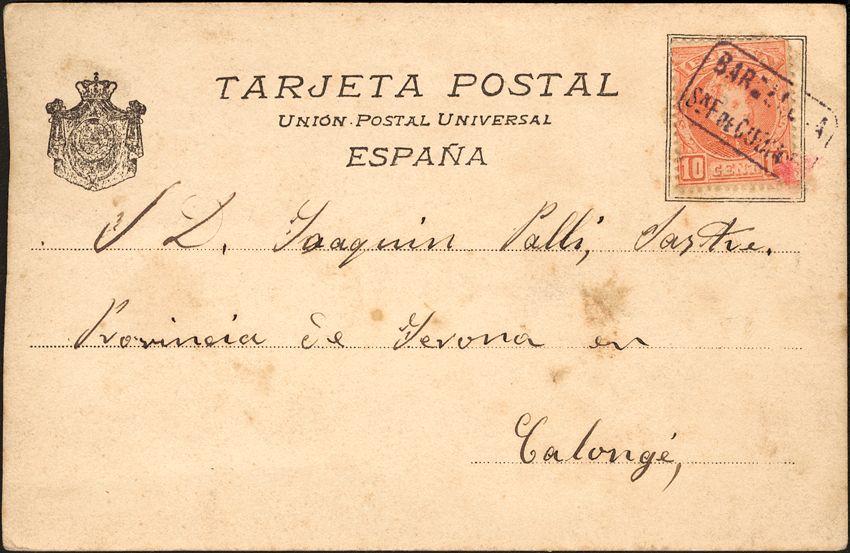 TARJETA POSTAL
UNIÓN POSTAL UNIVERSAL
ESPAÑA
10 CENT
S D. Joaquin Palli, Sastre.
Provincia de Jerona en
Calongé,